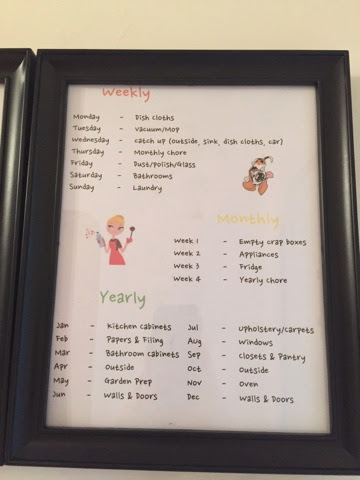 Weekly
Monday - Dish cloths
Tuesday - Vacuum/Mop
Wednesday - catch up (outside, sink, dish cloths, car)
Thursday - Monthly chore
Friday - Dust/polish/Glass
Saturday - Bathrooms
Sunday - Laundry
Monthly
Week 1 - Empty crap boxes
Week 2 - Appliances
Week 3 - Fridge
Week 4 - Yearly chore
Yearly
Jan - Kitchen cabinets Jul - Upholstery/carpets
Feb - Papers & Filing Aug - Windows
Mar - Bathroom cabinets Sep - Closets & Pantry
Apr - Outside Oct - Outside
May - Garden Prep Nov - Oven
Jun - Walls & Doors Dec - Walls & Doors